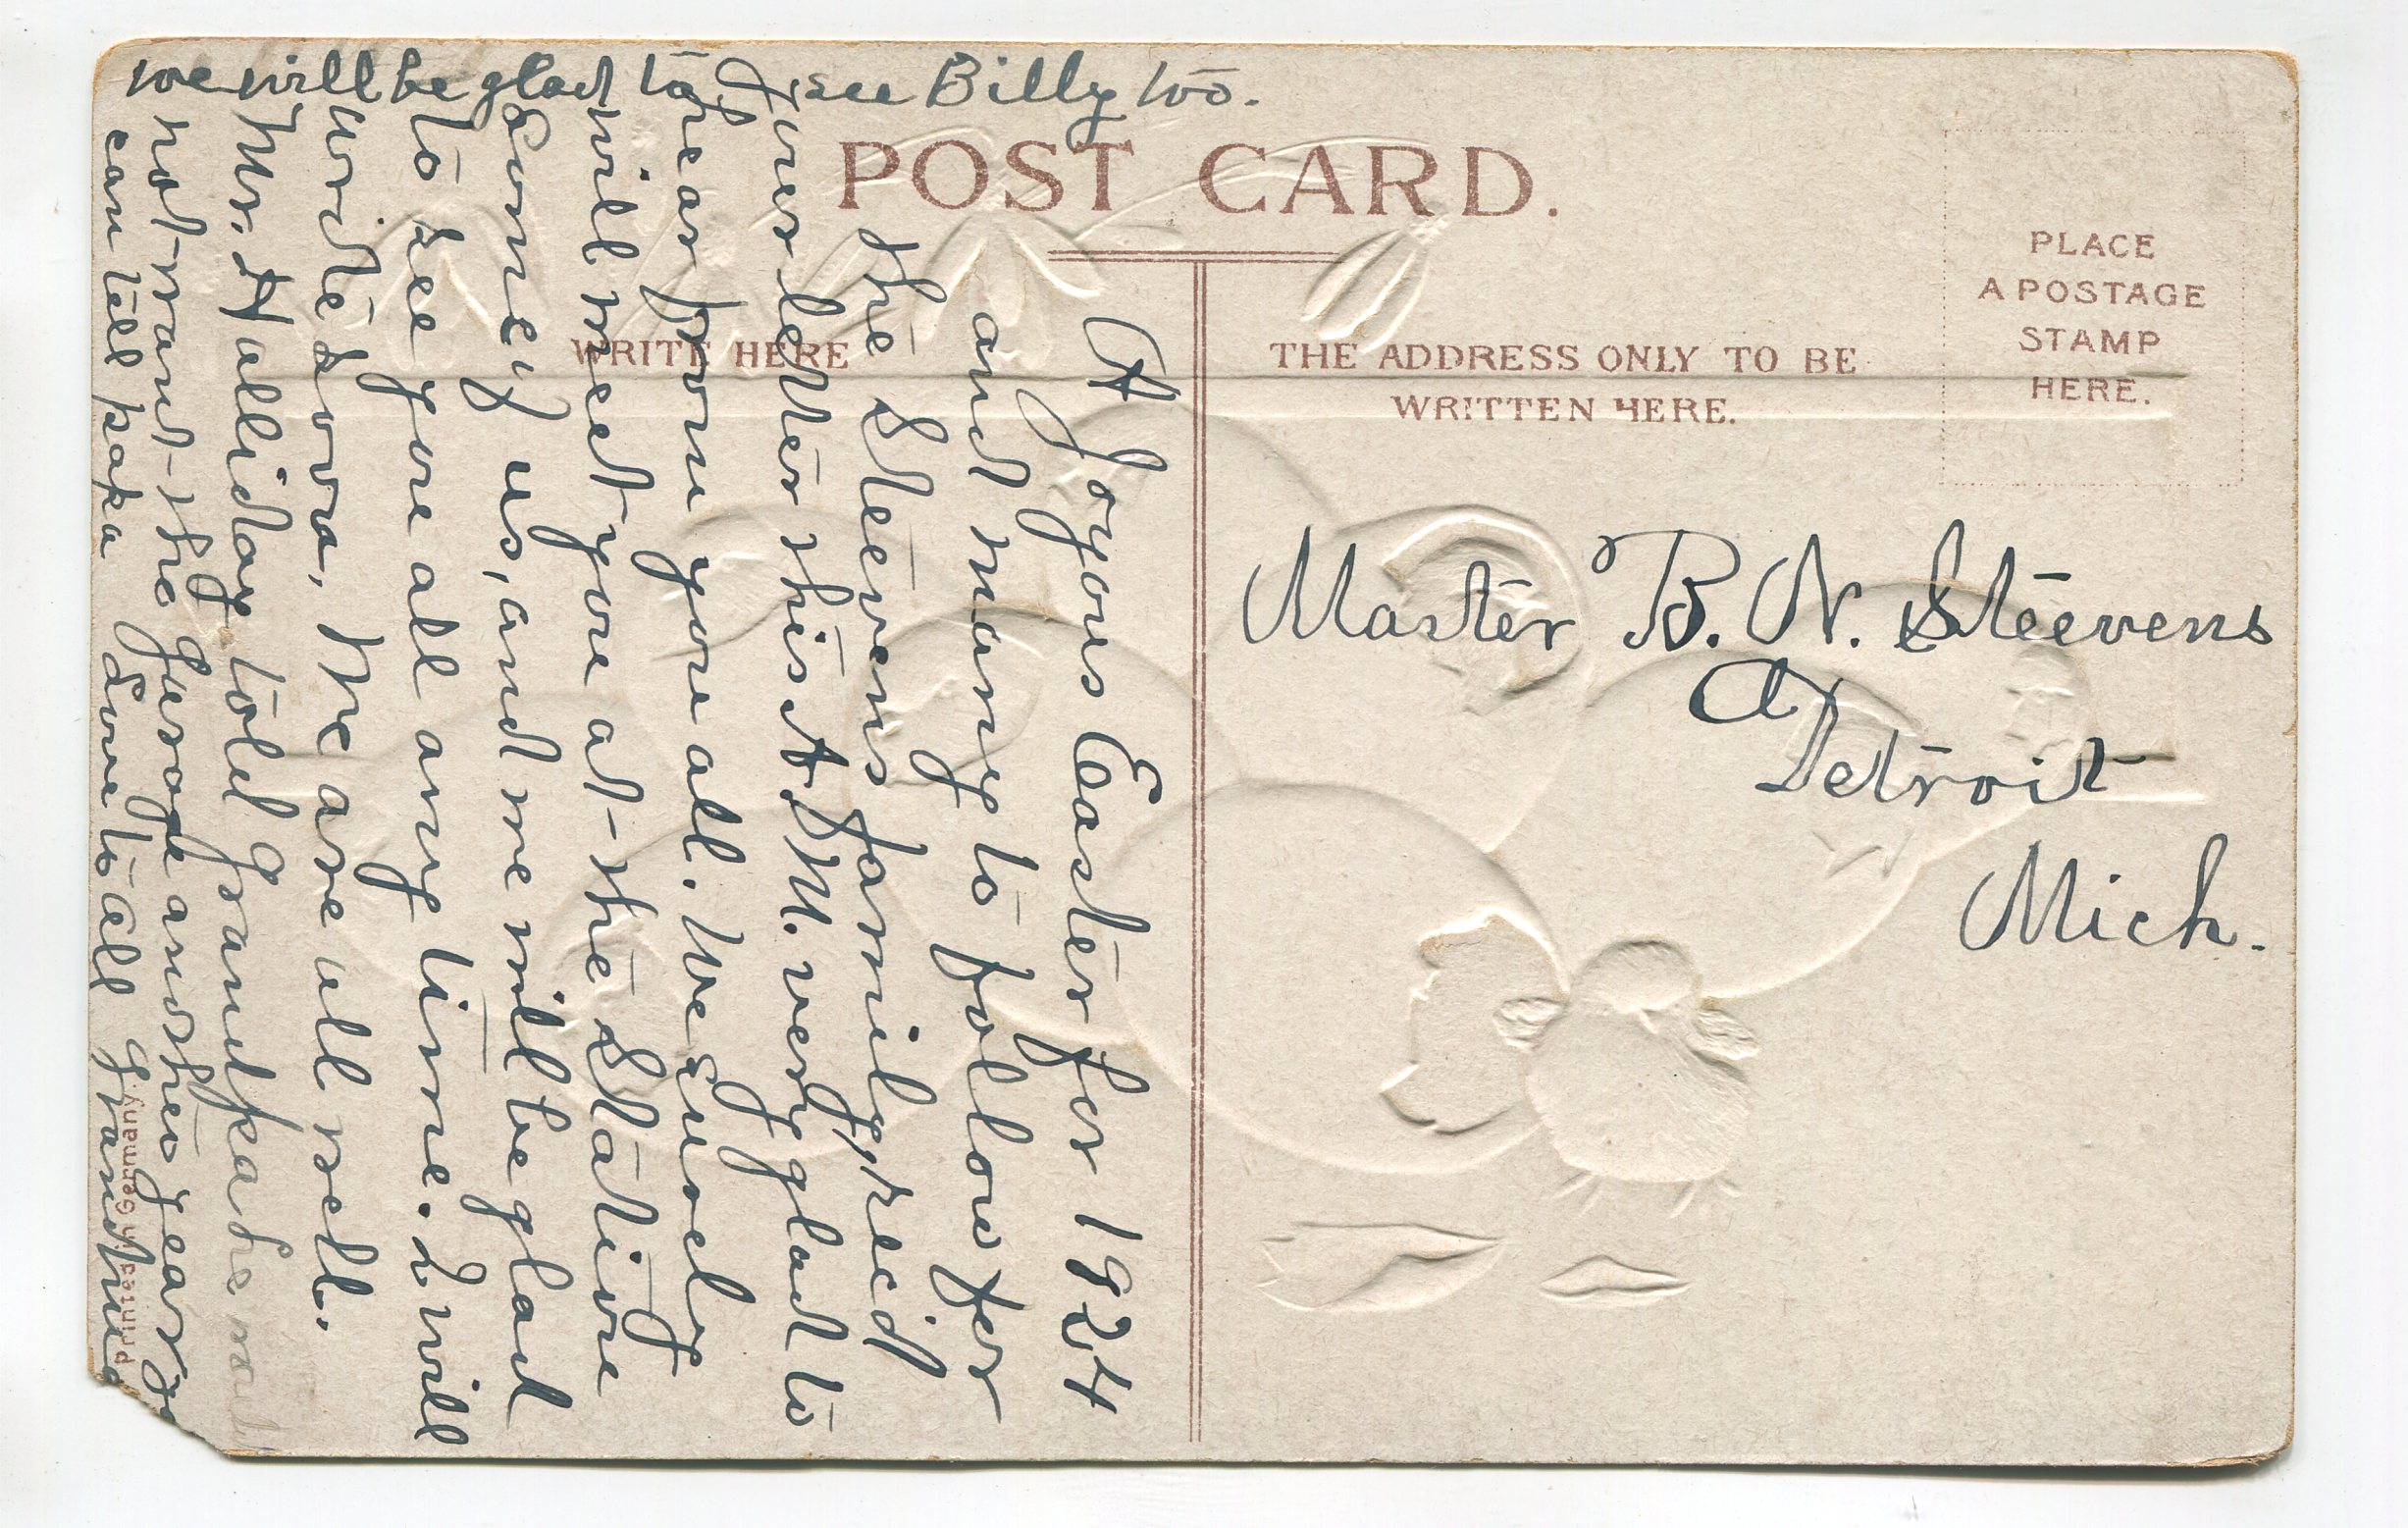 we will be glad to see Billy too.
POST CARD.
WRITE HERE
THE ADDRESS ONLY TO BE
WRITTEN HERE.
PLACE
A POSTAGE
STAMP
HERE.
Master B. N. Steevens
Detroit
Mich.
A Joyous Easter for 1924
and many to follow for
the Steevens family, recd
your letter this A.M. very glad to
hear from you all. We surely
will meet you at the Station
Sonney us, and we will be glad
to see you all any time. I will
write Lovra, We are all well.
Mr. Halliday told Grandpa he would
not want the garage another year, so
can tell papa Love to all Grandma
Printed in Germany